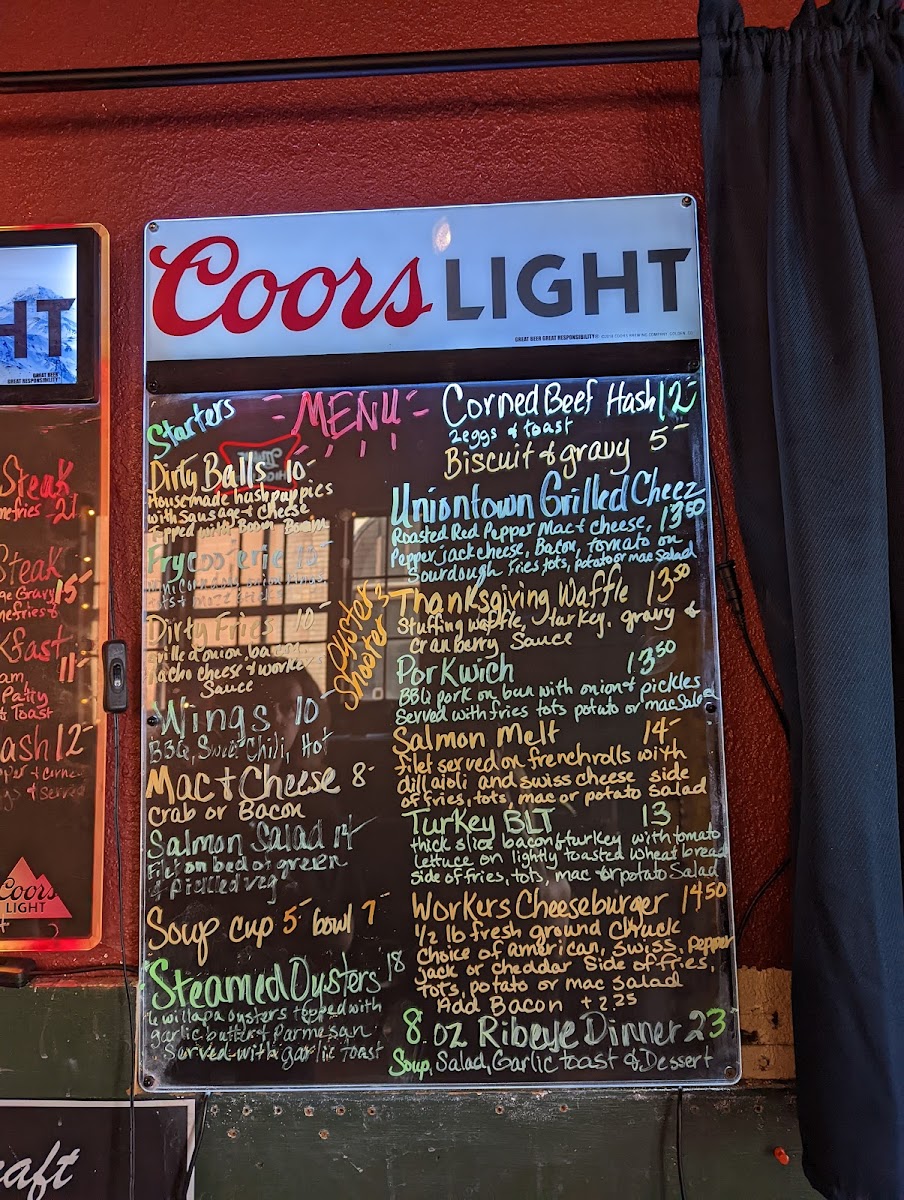 Coors LIGHT
GREAT BEER GREAT RESPONSIBILITY
HT
GREAT BEER
GREAT RESPONSIBILITY
Steak
fries 21
Steak
Gravy 15-
fries &
kfast
am, 11-
Patty
& Toast
ash 12-
& served
Coors
LIGHT
aft
- MENU -
Starters
Dirty Balls 10-
House made hushpuppies
with Sausage & Cheese
Topped with Boom Boom
Frycoo'erie 10-
Dirty Fries 10-
Grilled onion, bacon,
nacho cheese & workers
Sauce
Oyster
Shooter 3-
Wings 10-
BBQ, Sweet Chili, Hot
Mac & Cheese 8-
Crab or Bacon
Salmon Salad 14
Filet on bed of green
& pickled veg
Soup cup 5- bowl 7-
Steamed Oysters 18
6 willapa oysters topped with
garlic butter & Parmesan
Served with garlic Toast
Corned Beef Hash 12-
2 eggs & toast
Biscuit & gravy 5-
Uniontown Grilled Cheez
Roasted Red Pepper Mac & cheese, 13.50
Pepper jack cheese, Bacon, tomato on
Sourdough Fries tots, potato or mac Salad
Thanksgiving Waffle 13.50
Stuffing waffle, turkey, gravy &
cranberry Sauce
Porkwich 13.50
BBQ pork on bun with onion & pickles
Served with fries tots potato or mac Salad
Salmon Melt 14-
filet served on french rolls with
dill aioli and swiss cheese side
of fries, tots, mac or potato salad
Turkey BLT 13
thick slice bacon & turkey with tomato
lettuce on lightly toasted wheat bread
side of fries, tots, mac or potato Salad
Workers Cheeseburger 14.50
1/2 lb fresh ground Chuck
Choice of american, swiss, pepper
jack or cheddar Side of fries,
tots, potato or mac Salad
Add Bacon +2.25
8 oz Ribeye Dinner 23
Soup, Salad, Garlic toast & Dessert